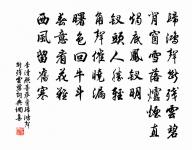 歸鴻聲斷殘雲碧
背窗雪落爐煙直
燭底鳳釵明
釵頭人勝輕
角聲催曉漏
曙色回牛斗
春意看花難
西風留舊寒
李清照菩薩蠻歸鴻聲
斷殘雲碧